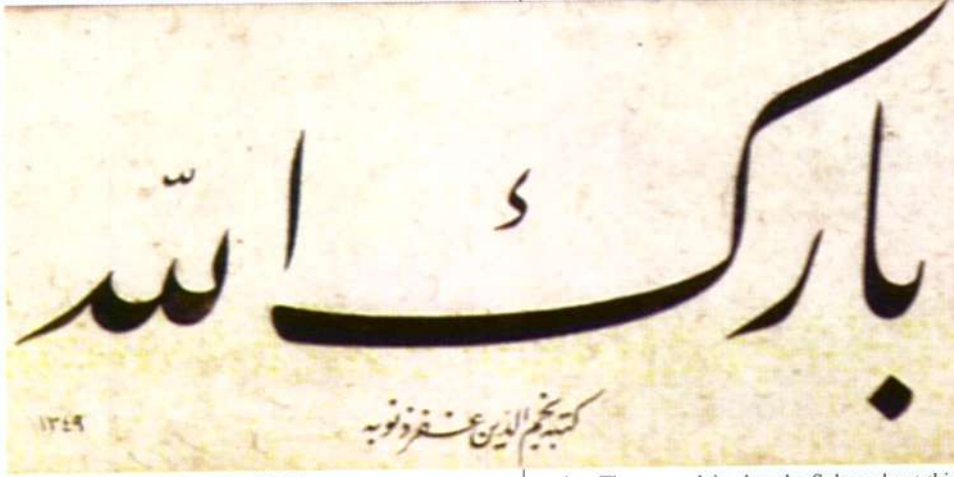 بارك اللّه
كتبه نجم الدين غفر ذنوبه
١٣٤٩